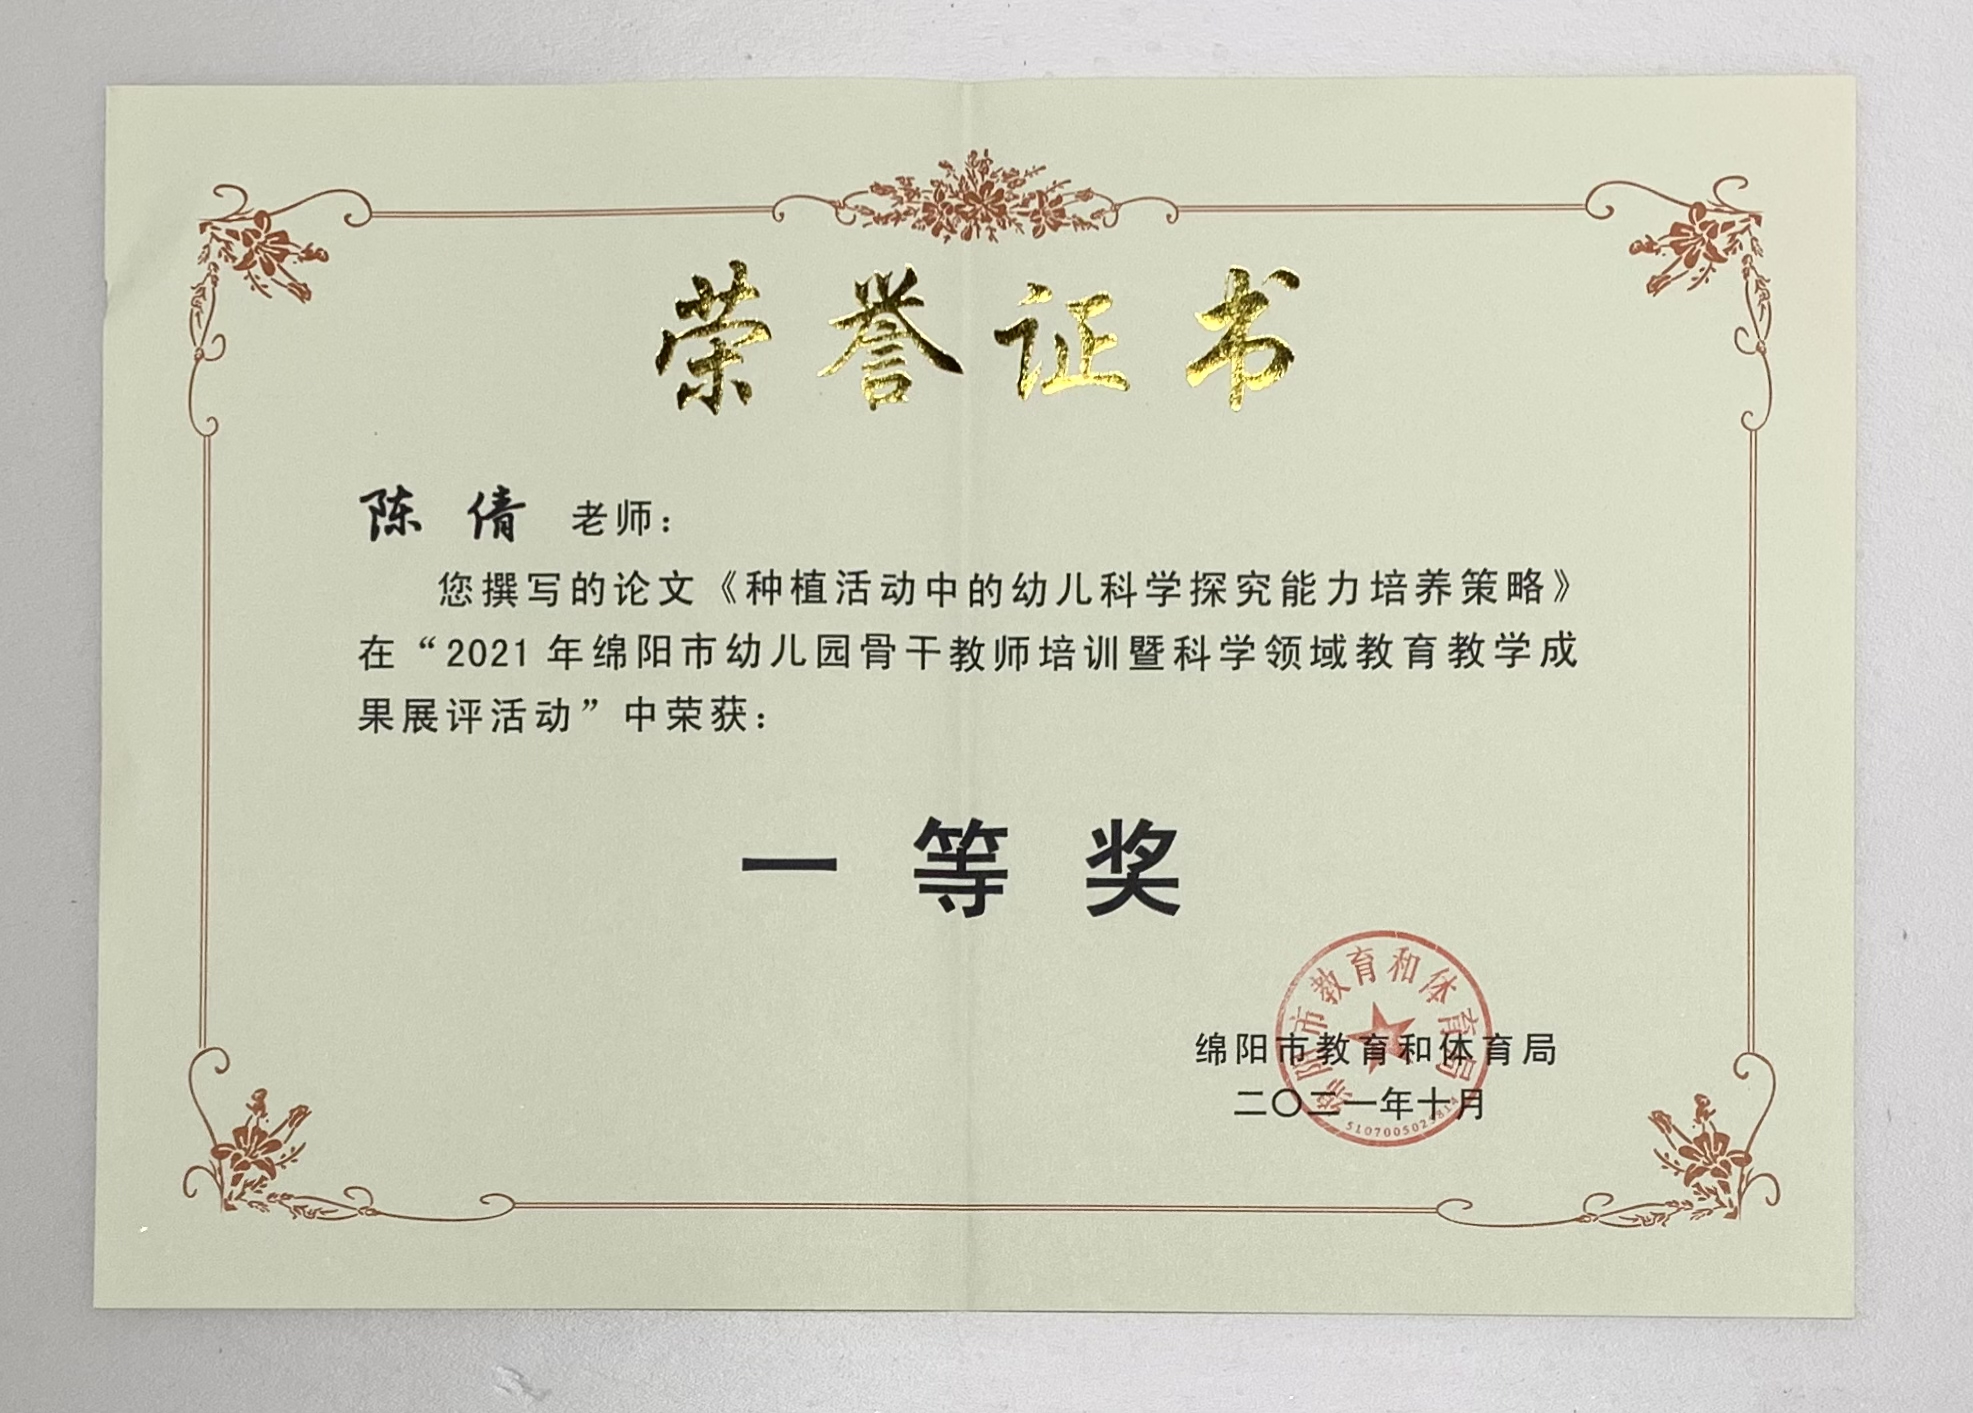 荣誉证书
陈 倩 老师：
您撰写的论文《种植活动中的幼儿科学探究能力培养策略》
在“2021 年绵阳市幼儿园骨干教师培训暨科学领域教育教学成
果展评活动”中荣获：
一等奖
绵阳市教育和体育局
二〇二一年十月
绵阳市教育和体育局